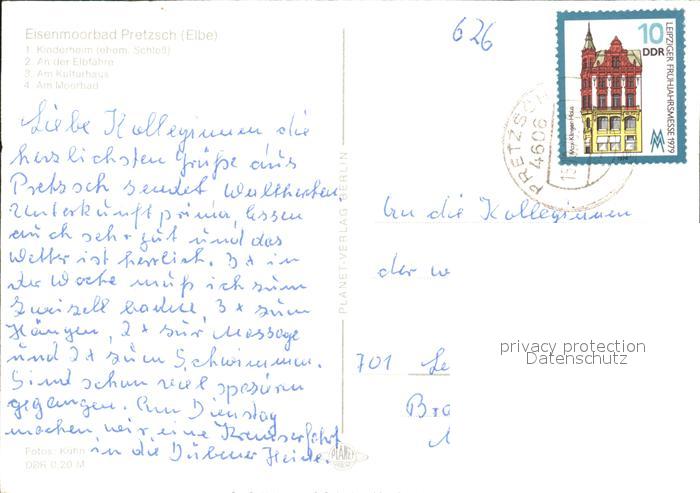 Eisenmoorbad Pretzsch (Elbe)
1. Kinderheim (ehem. Schloß)
2. An der Elbfähre
3. Am Kulturhaus
4. Am Moorbad
626
10
DDR
LEIPZIGER FRÜHJAHRSMESSE 1979
PRETZSCH
4606
Liebe Kolleginnen die
herzlichsten Grüße aus
Pretzsch sendet
Unterkunft prima, Essen
auch sehr gut und das
Wetter ist herrlich. 3x in
der Woche muß ich zum
baden, 3x zum
Hängen, 2x zur Massage
und 2x zum Schwimmen.
Sind schon viel spazieren
gegangen. Am Dienstag
machen wir eine Kremserfahrt
in die Dübener Heide.
PLANET-VERLAG BERLIN
An die Kolleginnen
der W
701 Le
Bro
privacy protection
Datenschutz
Fotos: Kühn
DDR 0,20 M
PLANET